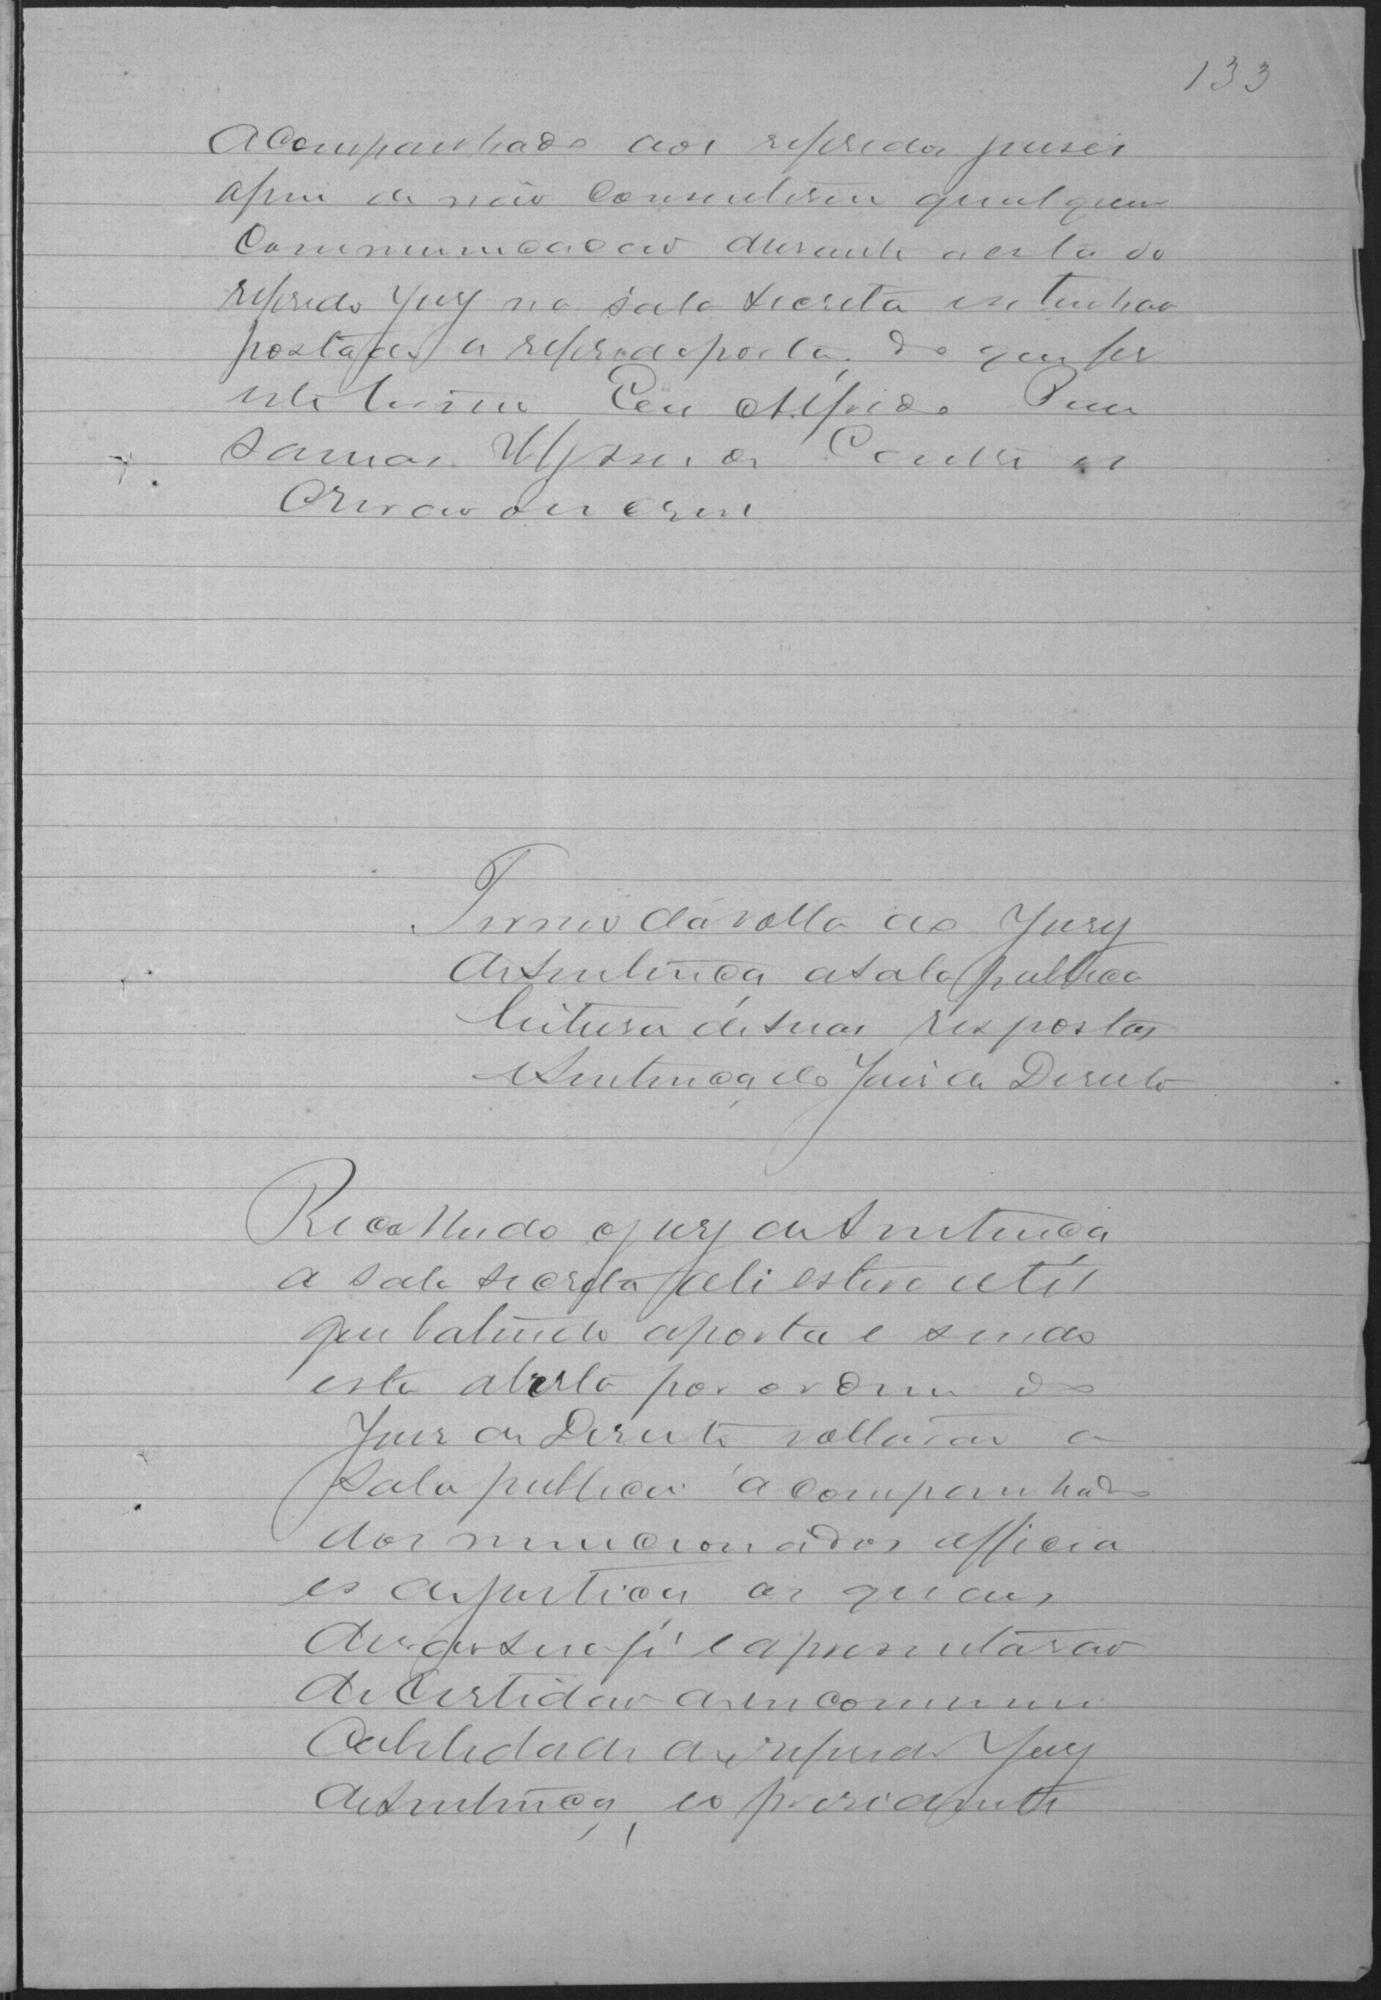 133
Acompanhado aos referidos juises
afim de não consentirem qualquer
communicacao durante a esta do
referido Jury na sala secreta e se tenhao
postado a referida porta, do que fis
este termo Eu Alfrido
Ulysses
Escrivao o escrevi
Termo da volta do Jury
de Sentença a sala publica
leitura de suas respostas
e Sentença do Juis de Direito
Recolhido o jury de Sentença
a sala secreta, ali esteve até
que batendo a porta e sendo
esta aberta por ordem do
Juis de Direito voltarão a
sala publica acompanhado
dos mencionados officia
es de justica os quaes
derao sua fé e apresentarao
de Certidao de encommuni
cabilidade do referido Jury
de Sentença, e o presidente